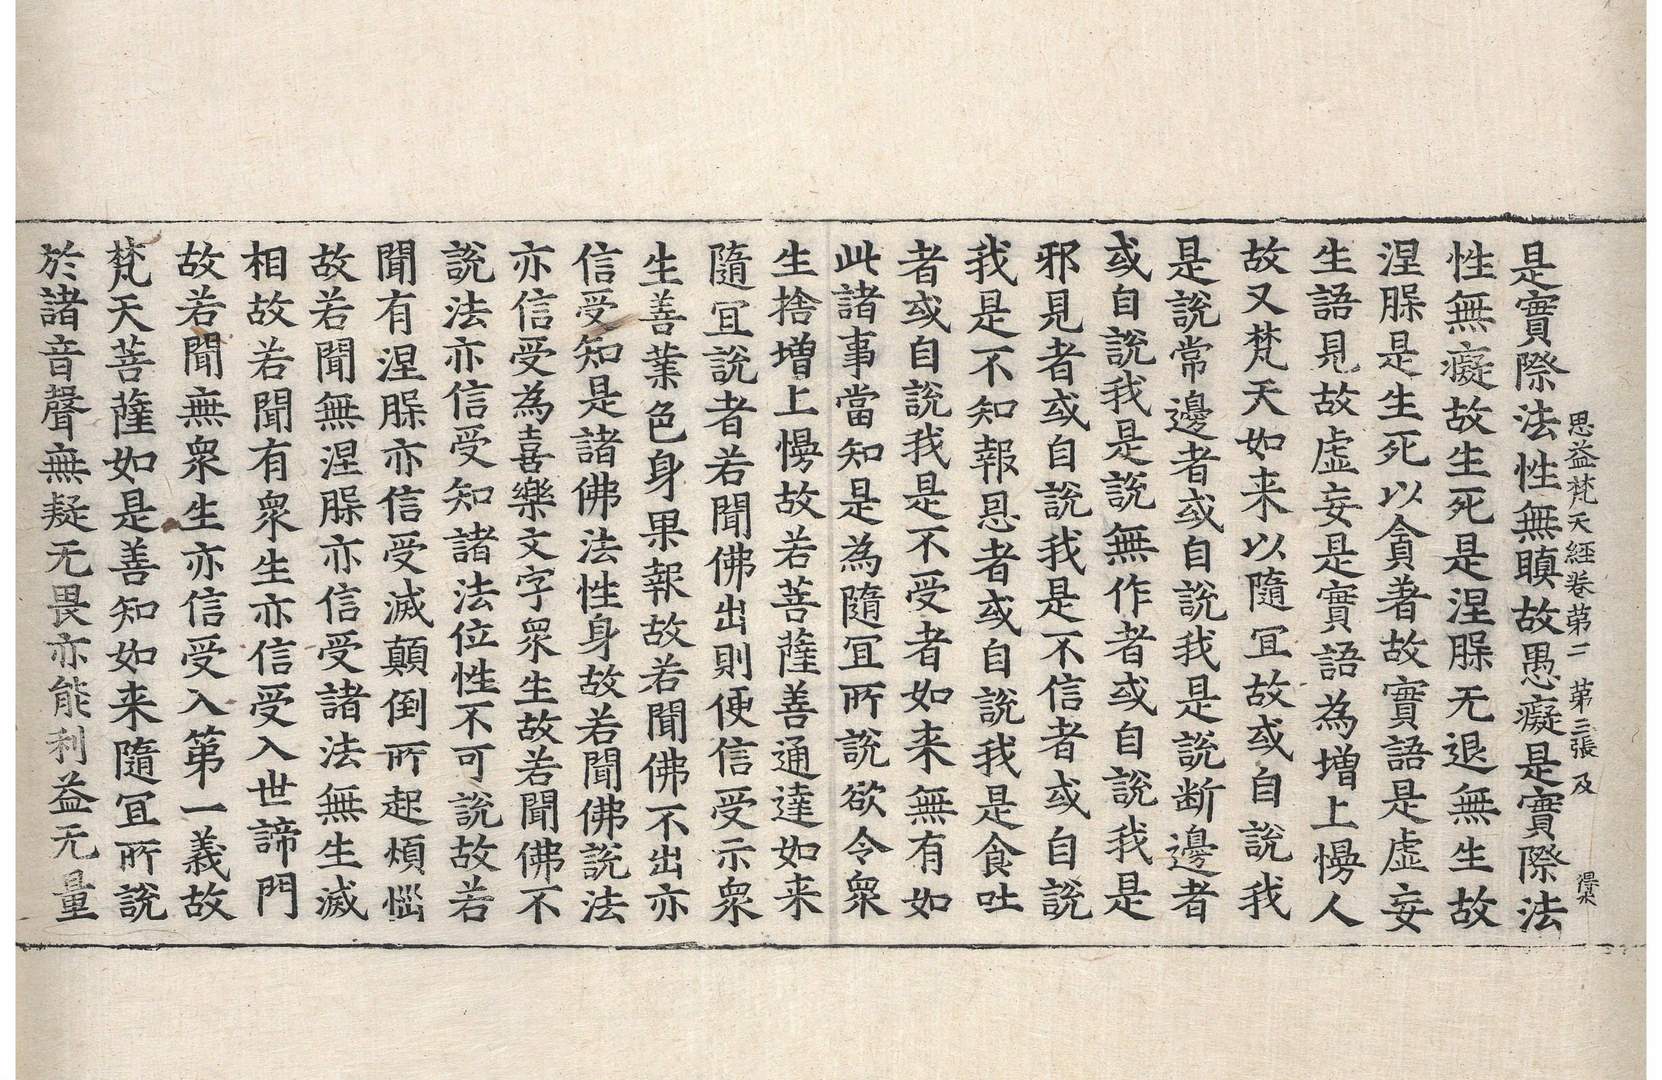 思益梵天經卷第二　第三張　及
是實際法性無瞋故愚癡是實際法
性無癡故生死是涅脲无退無生故
涅脲是生死以貪著故實語是虛妄
生語見故虛妄是實語為增上慢人
故又梵天如来以隨冝故或自說我
是說常邊者或自說我是說断邊者
或自說我是說無作者或自說我是
邪見者或自說我是不信者或自說
我是不知報恩者或自說我是食吐
者或自說我是不受者如来無有如
此諸事當知是為隨冝所說欲令衆
生捨增上慢故若菩薩善通達如来
隨冝說者若聞佛出則便信受示衆
生善業色身果報故若聞佛不出亦
信受知是諸佛法性身故若聞佛說法
亦信受為喜樂文字衆生故若聞佛不
說法亦信受知諸法位性不可說故若
聞有涅脲亦信受滅顛倒所起煩惱
故若聞無涅脲亦信受諸法無生滅
相故若聞有衆生亦信受入世諦門
故若聞無衆生亦信受入第一義故
梵天菩薩如是善知如来隨冝所說
於諸音聲無疑无畏亦能利益无量